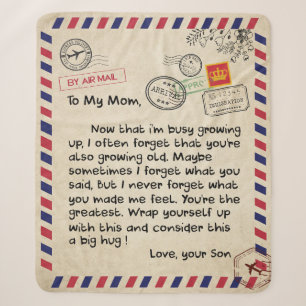 BY AIR MAIL
ARRIVAL
To My Mom,
Now that i'm busy growing
up, I often forget that you're
also growing old. Maybe
sometimes I forget what you
said, but I never forget what
you made me feel. You're the
greatest. Wrap yourself up
with this and consider this
a big hug !
Love, your Son